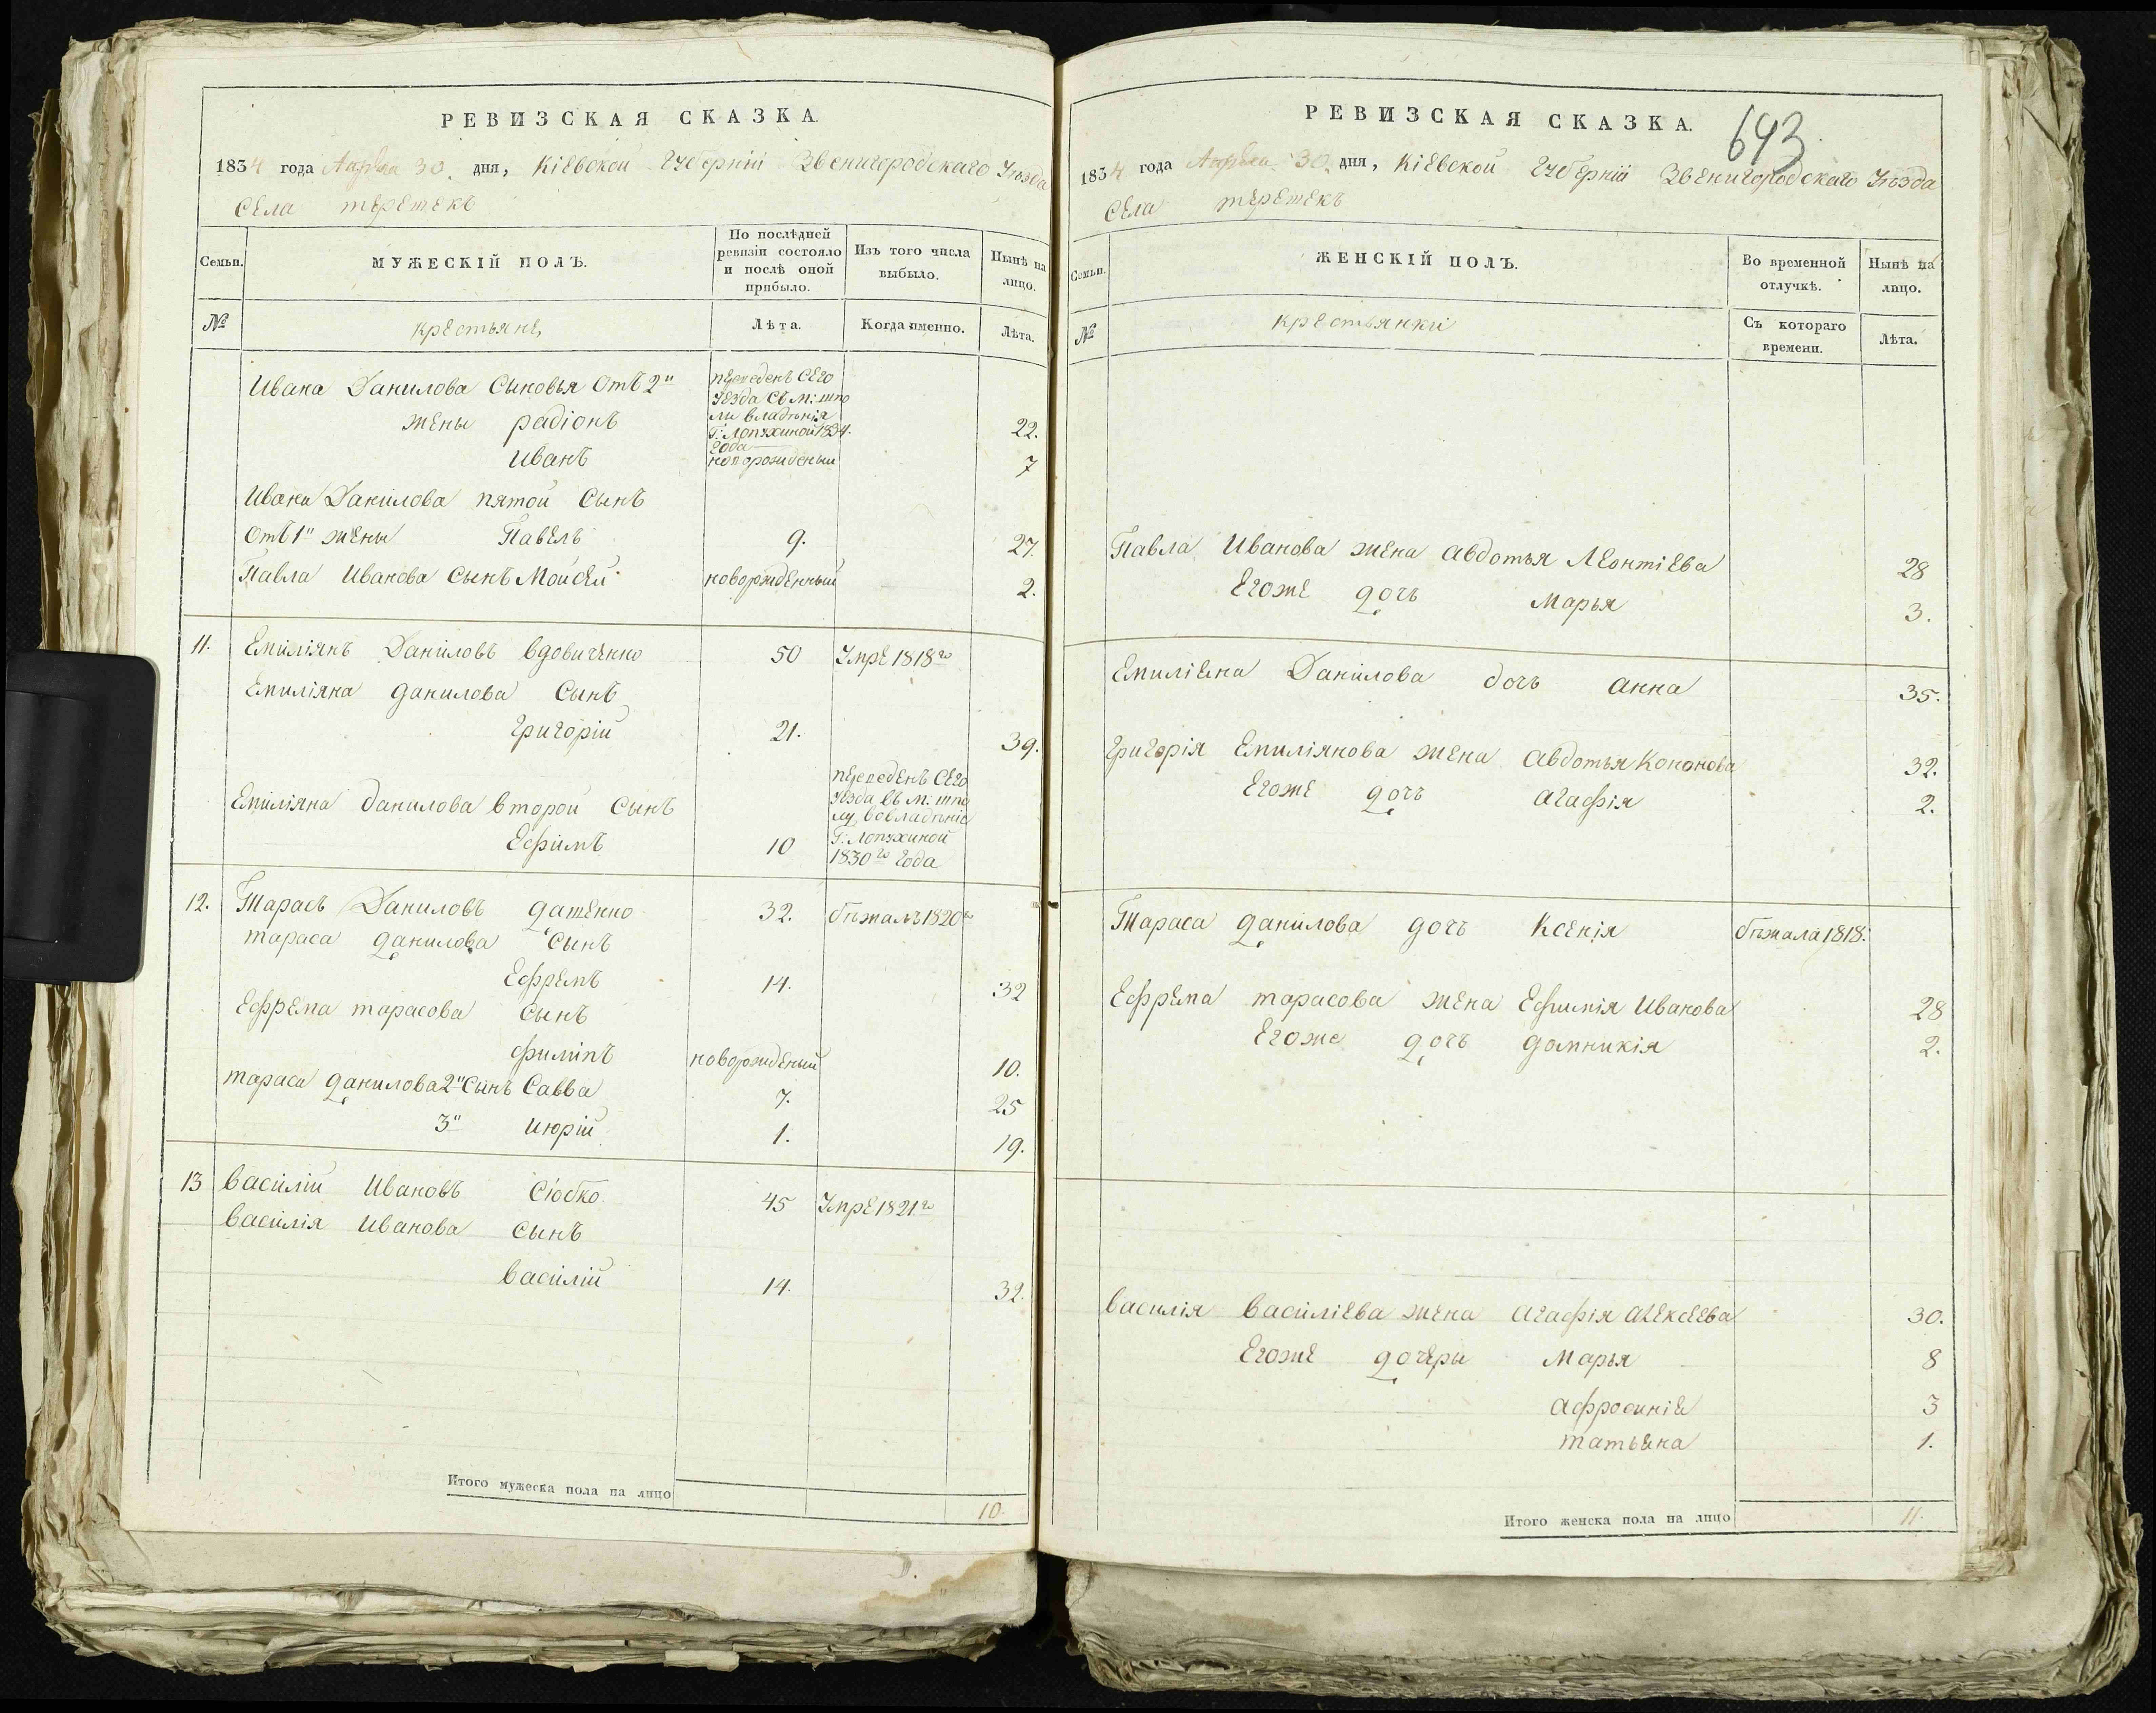 РЕВИЗСКАЯ СКАЗКА.
1834 года Апреля 30. дня, Кіевской Губерніи Звенигородскаго Уѣзда
Села теретекъ
Семьи.
МУЖЕСКІЙ ПОЛЪ.
По послѣдней ревизіи состояло и послѣ оной прибыло.
Изъ того числа выбыло.
Нынѣ на лицо.
№
крестьяне
Лѣта.
Когда именно.
Лѣта.
Ивана Данилова Сыновья Отъ 2й
жены радіонъ 22.
переведенъ Сего
уезда Съ м: шпо
ли владѣнія
Г: Лопухиной 1834.
года
Иванъ новорожденый 7
Ивана Данилова пятой Сынъ
Отъ 1й жены Павелъ 9. 27.
Павла Иванова Сынъ Моисей новорожденный 2.
11. Емиліянъ Даниловъ вдовиченко 50 Умре 1818го
Емиліяна данилова Сынъ
григорій 21. 39.
Емиліяна данилова второй Сынъ
Ефимъ 10
переведенъ Сего
уезда въ м: шпо
лу вовладѣніе
Г: Лопухиной
1830го года
12. Тарасъ Даниловъ даценко 32. бѣжалъ 1820го
тараса данилова Сынъ
Ефремъ 14. 32
Ефрема тарасова сынъ
филипъ новорожденый 10.
тараса данилова 2й Сынъ Савва 7. 25
3й июрій 1. 19.
13 василій Ивановъ Сюбко. 45 Умре 1821го
василія Иванова сынъ
василій 14. 32.
Итого мужеска пола на лицо 10.
РЕВИЗСКАЯ СКАЗКА.
643
1834 года Апреля 30. дня, Кіевской Губерніи Звенигородскаго Уѣзда
Села теретекъ
Семьи.
ЖЕНСКІЙ ПОЛЪ.
Во временной отлучкѣ.
Нынѣ на лицо.
№
крестьянки
Съ котораго времени.
Лѣта.
Павла Иванова жена авдотья Леонтіева 28
Егоже дочь Марья 3.
Емиліяна Данилова дочь анна 35.
григорія Емиліянова жена авдотья Кононова 32.
Егоже дочь агафія 2.
Тараса данилова дочь Ксенія бѣжала 1818.
Ефрема тарасова жена Ефимія Иванова 28
Егоже дочь домникія 2.
василія василіева жена агафія алексеева 30.
Егоже дочеры Марья 8
афросинія 3
татьяна 1.
Итого женска пола на лицо 11.